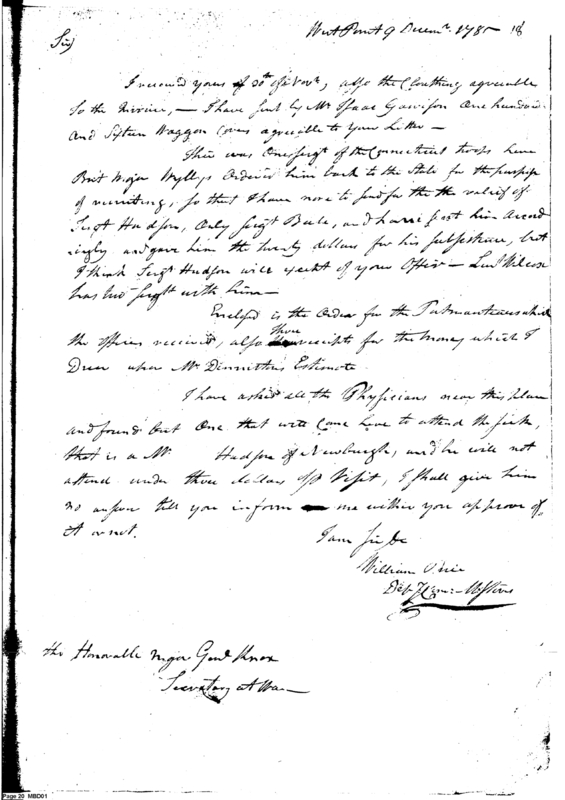 West Point 9 Decemr. 1785 18
Sir
I received yours of 30th of Novr, also the Cloathing agreeable
to the Invoice, — I have sent by Mr Isaac Garrison One hundred
and Sixteen Waggon Covers agreeible to your Letter —
There was One sergt of the Connecticut troops here
Bret Major Wyllys Ordered him back to the State for the purpose
of recruiting, so that I have none to send for the the relief of
Sergt Hudson, Only Sergt Beebe, and have sent him accord
ingly and gave him the twenty dollars for his subsistance, but
I think Sergt Hudson will except of your Offer — Lieut Wilcox
has two sergts with him —
Enclosed is the Order for the Portmanteaus which
the officers received, also three receipts for the money which I
Drew upon Mr Dimnithirs Estimate
I have asked all the Physicians near this place
and found but One that will come here to attend the sick,
that is a Mr Hudson of Newburgh, and he will not
attend under three dollars pr Visit, I shall give him
no answer till you inform me wither you approve of
it or not.
I am Sir &c
William Price
Dep Comr: M Stores
the Honorable Major Genl Knox
Secretary at War —
Page 20 MBD01